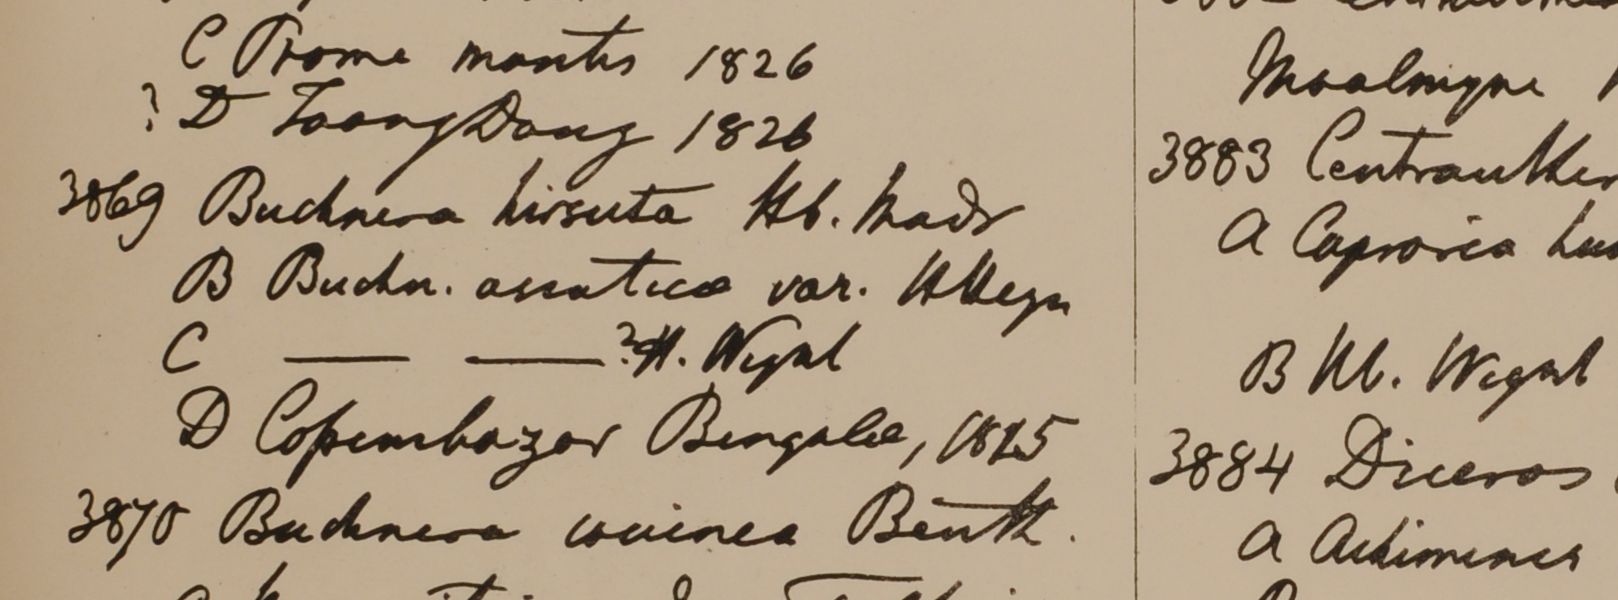 C Prome montis 1826
? D Taong Dong 1826
3869 Buchnera hirsuta Hb. Madr
B Buchn. assatica var. HHeyn
C — — ? H. Wight
D Bengalee, 1825
3870 Buchnera Benth.
Moalmyne
3883 Centranther
A Capraria hus
B Hb. Wight
3884 Diceros
A Achimenes